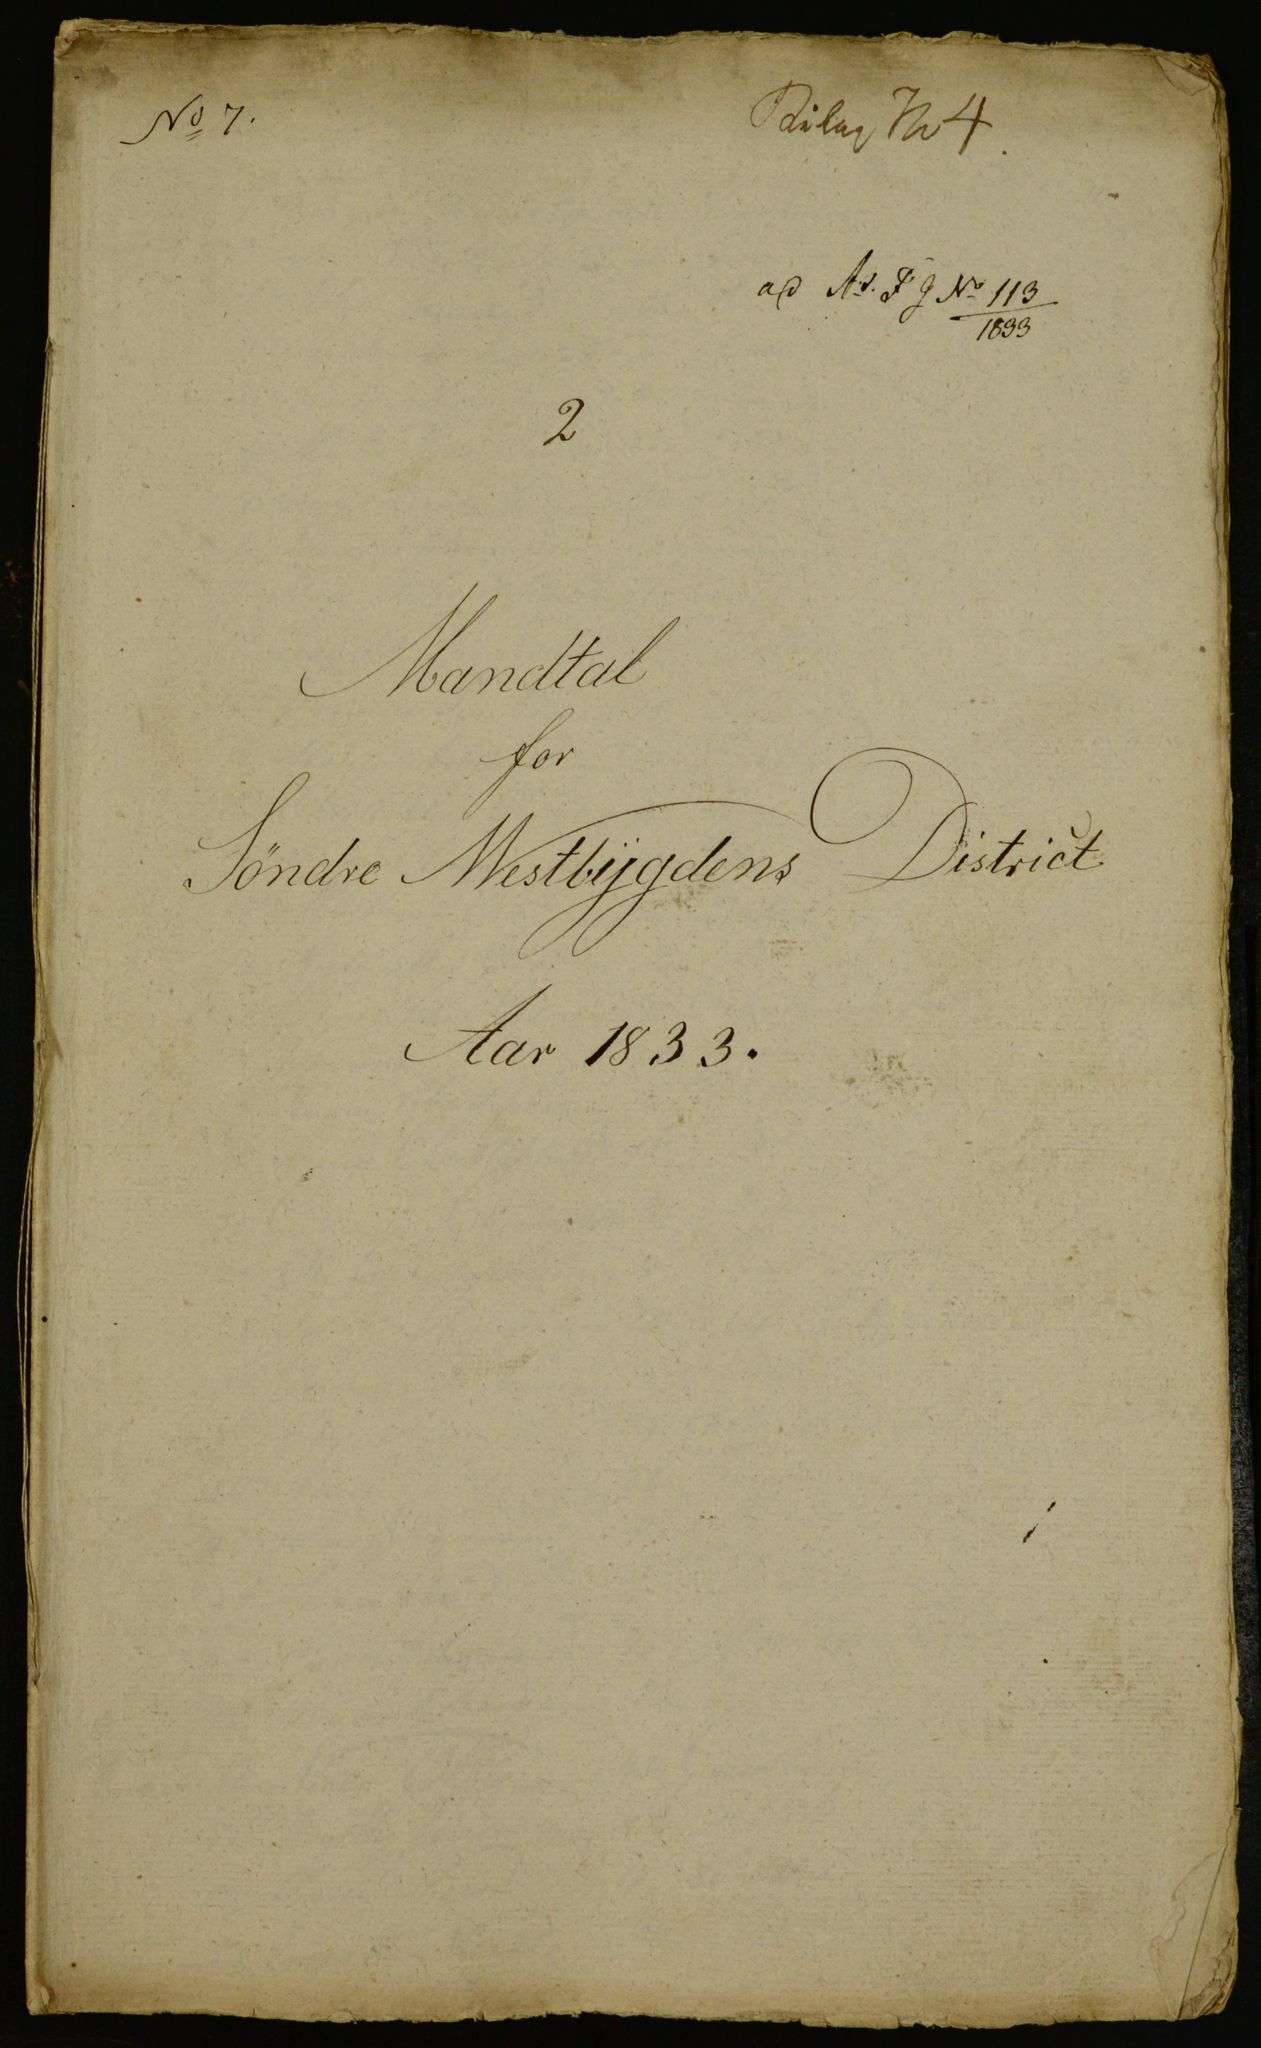 No 7.
Bilag No 4
ad As. F g No 113
1833
2
Mandtal
for
Söndre Westbÿgdens District
Aar 1833.